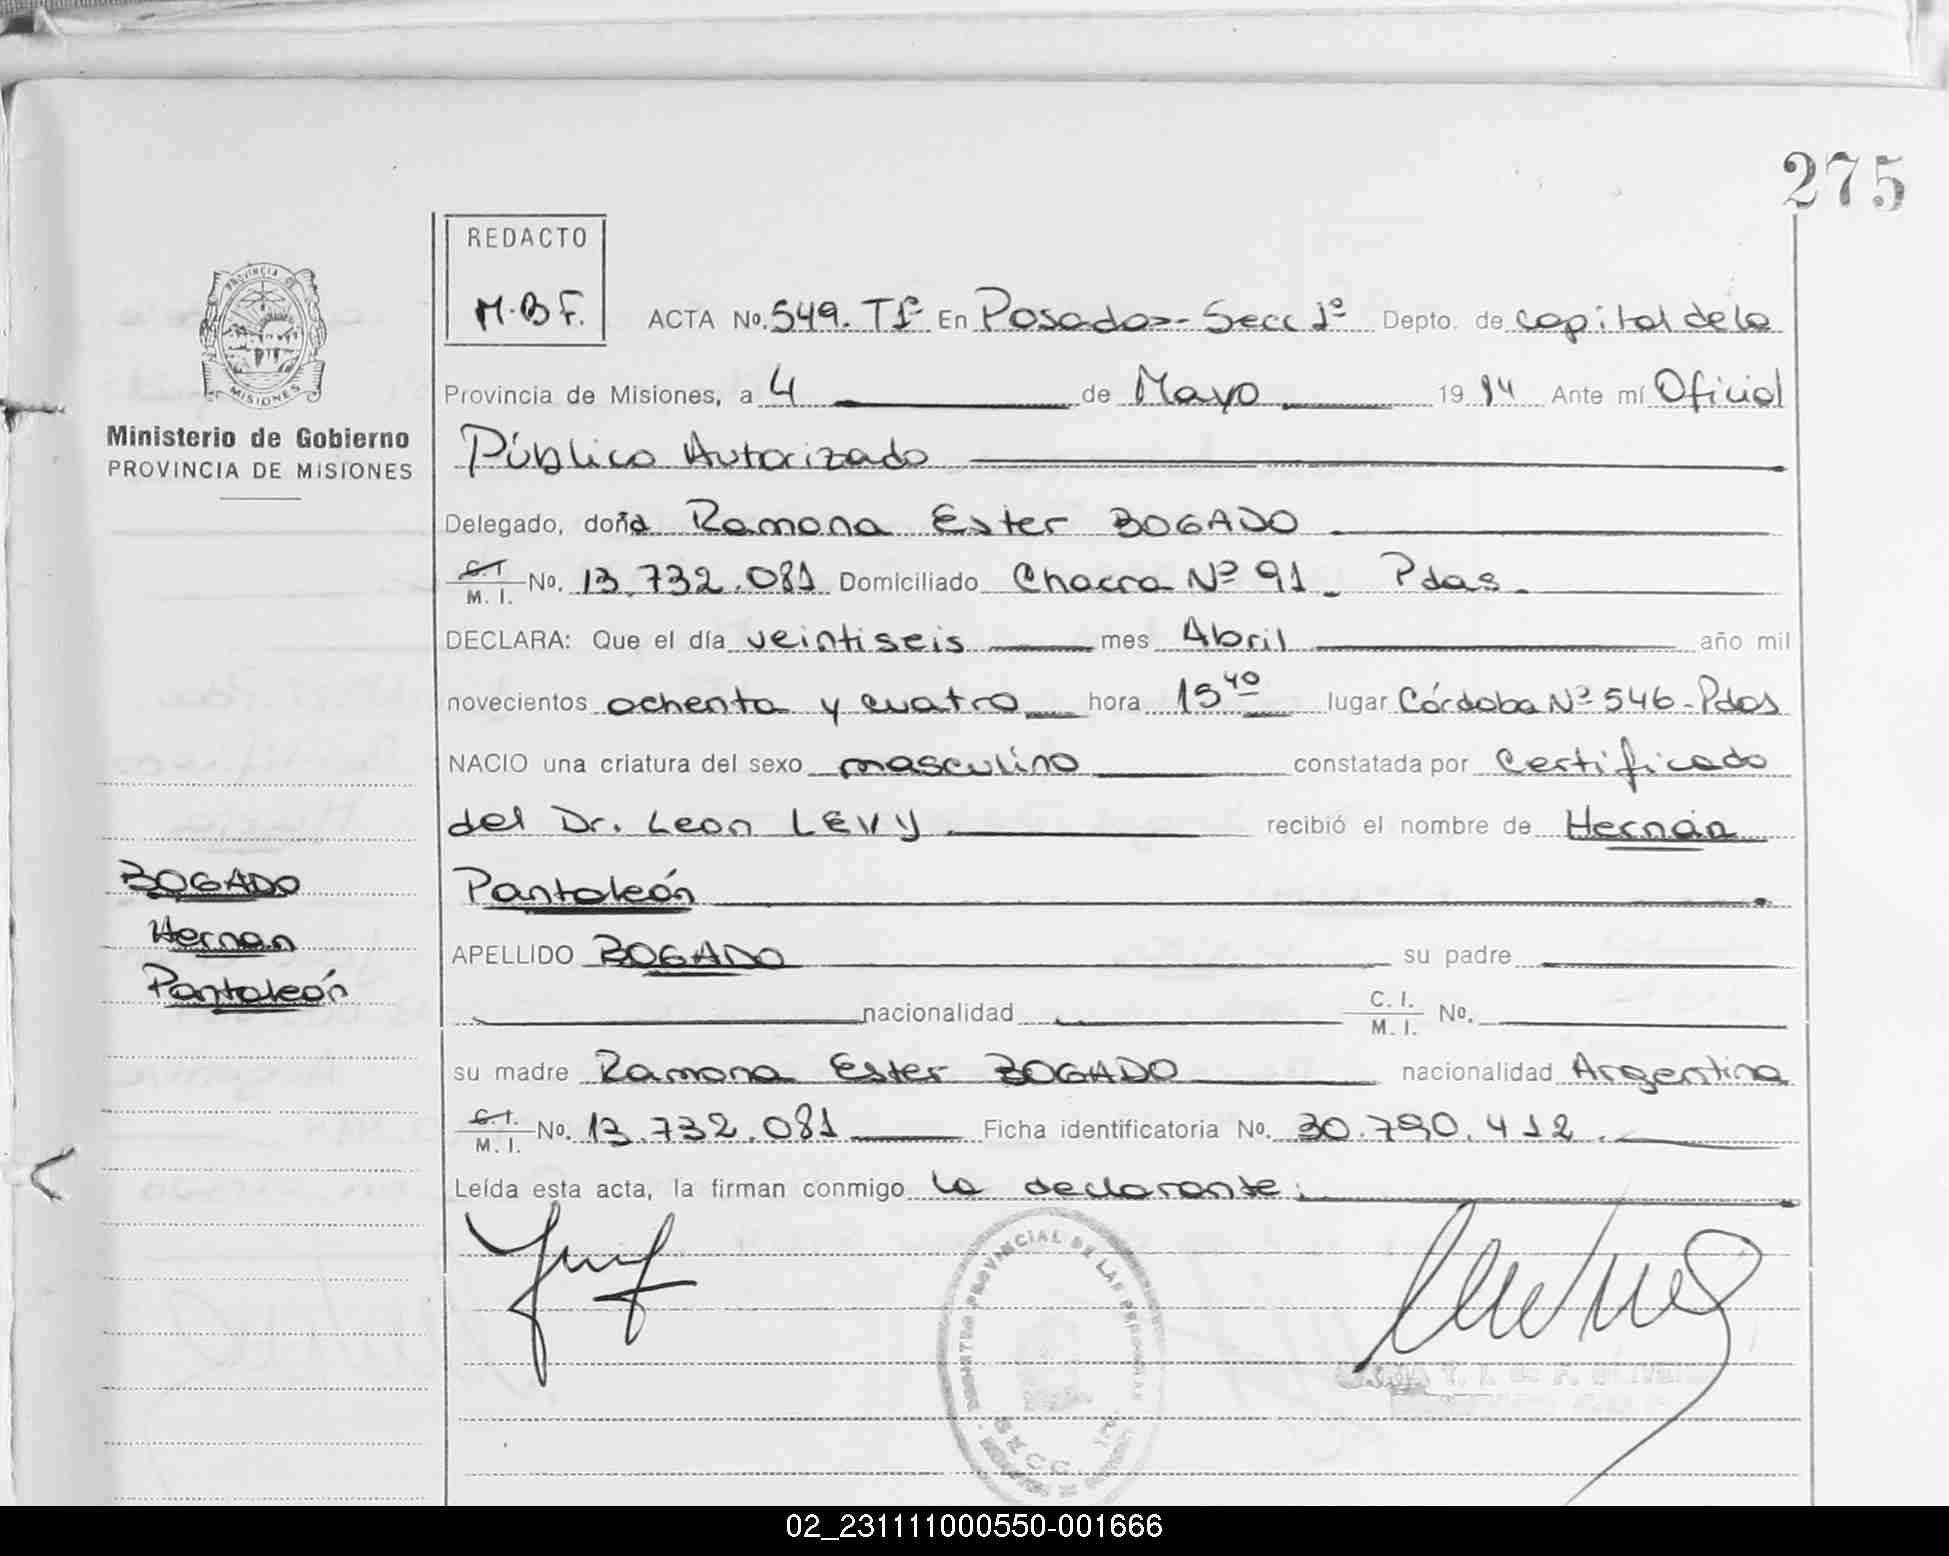 275
REDACTO
M.B.F.
ACTA No. 549. Tº 1º En Posadas - Secc 1º Depto. de capital de la
Provincia de Misiones, a 4 de Mayo 1984 Ante mí Oficial
Público Autorizado
Delegado, doña Ramona Ester BOGADO
C.I. M. I. No. 13.732.081 Domiciliado Chacra Nº 91 - Pdas.
DECLARA: Que el día veintiseis mes Abril año mil
novecientos ochenta y cuatro hora 15 40 lugar Córdoba Nº 546 - Pdas
NACIO una criatura del sexo masculino constatada por Certificado
del Dr. Leon LEVY recibió el nombre de Hernán
Pantaleón
APELLIDO BOGADO su padre
nacionalidad C. I. M. I. No.
su madre Ramona Ester BOGADO nacionalidad Argentina
C.I. M. I. No. 13.732.081 Ficha identificatoria No. 30.790.412.
Leída esta acta, la firman conmigo la declarante.
PROVINCIA DE MISIONES
Ministerio de Gobierno
PROVINCIA DE MISIONES
BOGADO
Hernan
Pantaleón
REGISTRO PROVINCIAL DE LAS PERSONAS
SECC.
02_231111000550-001666